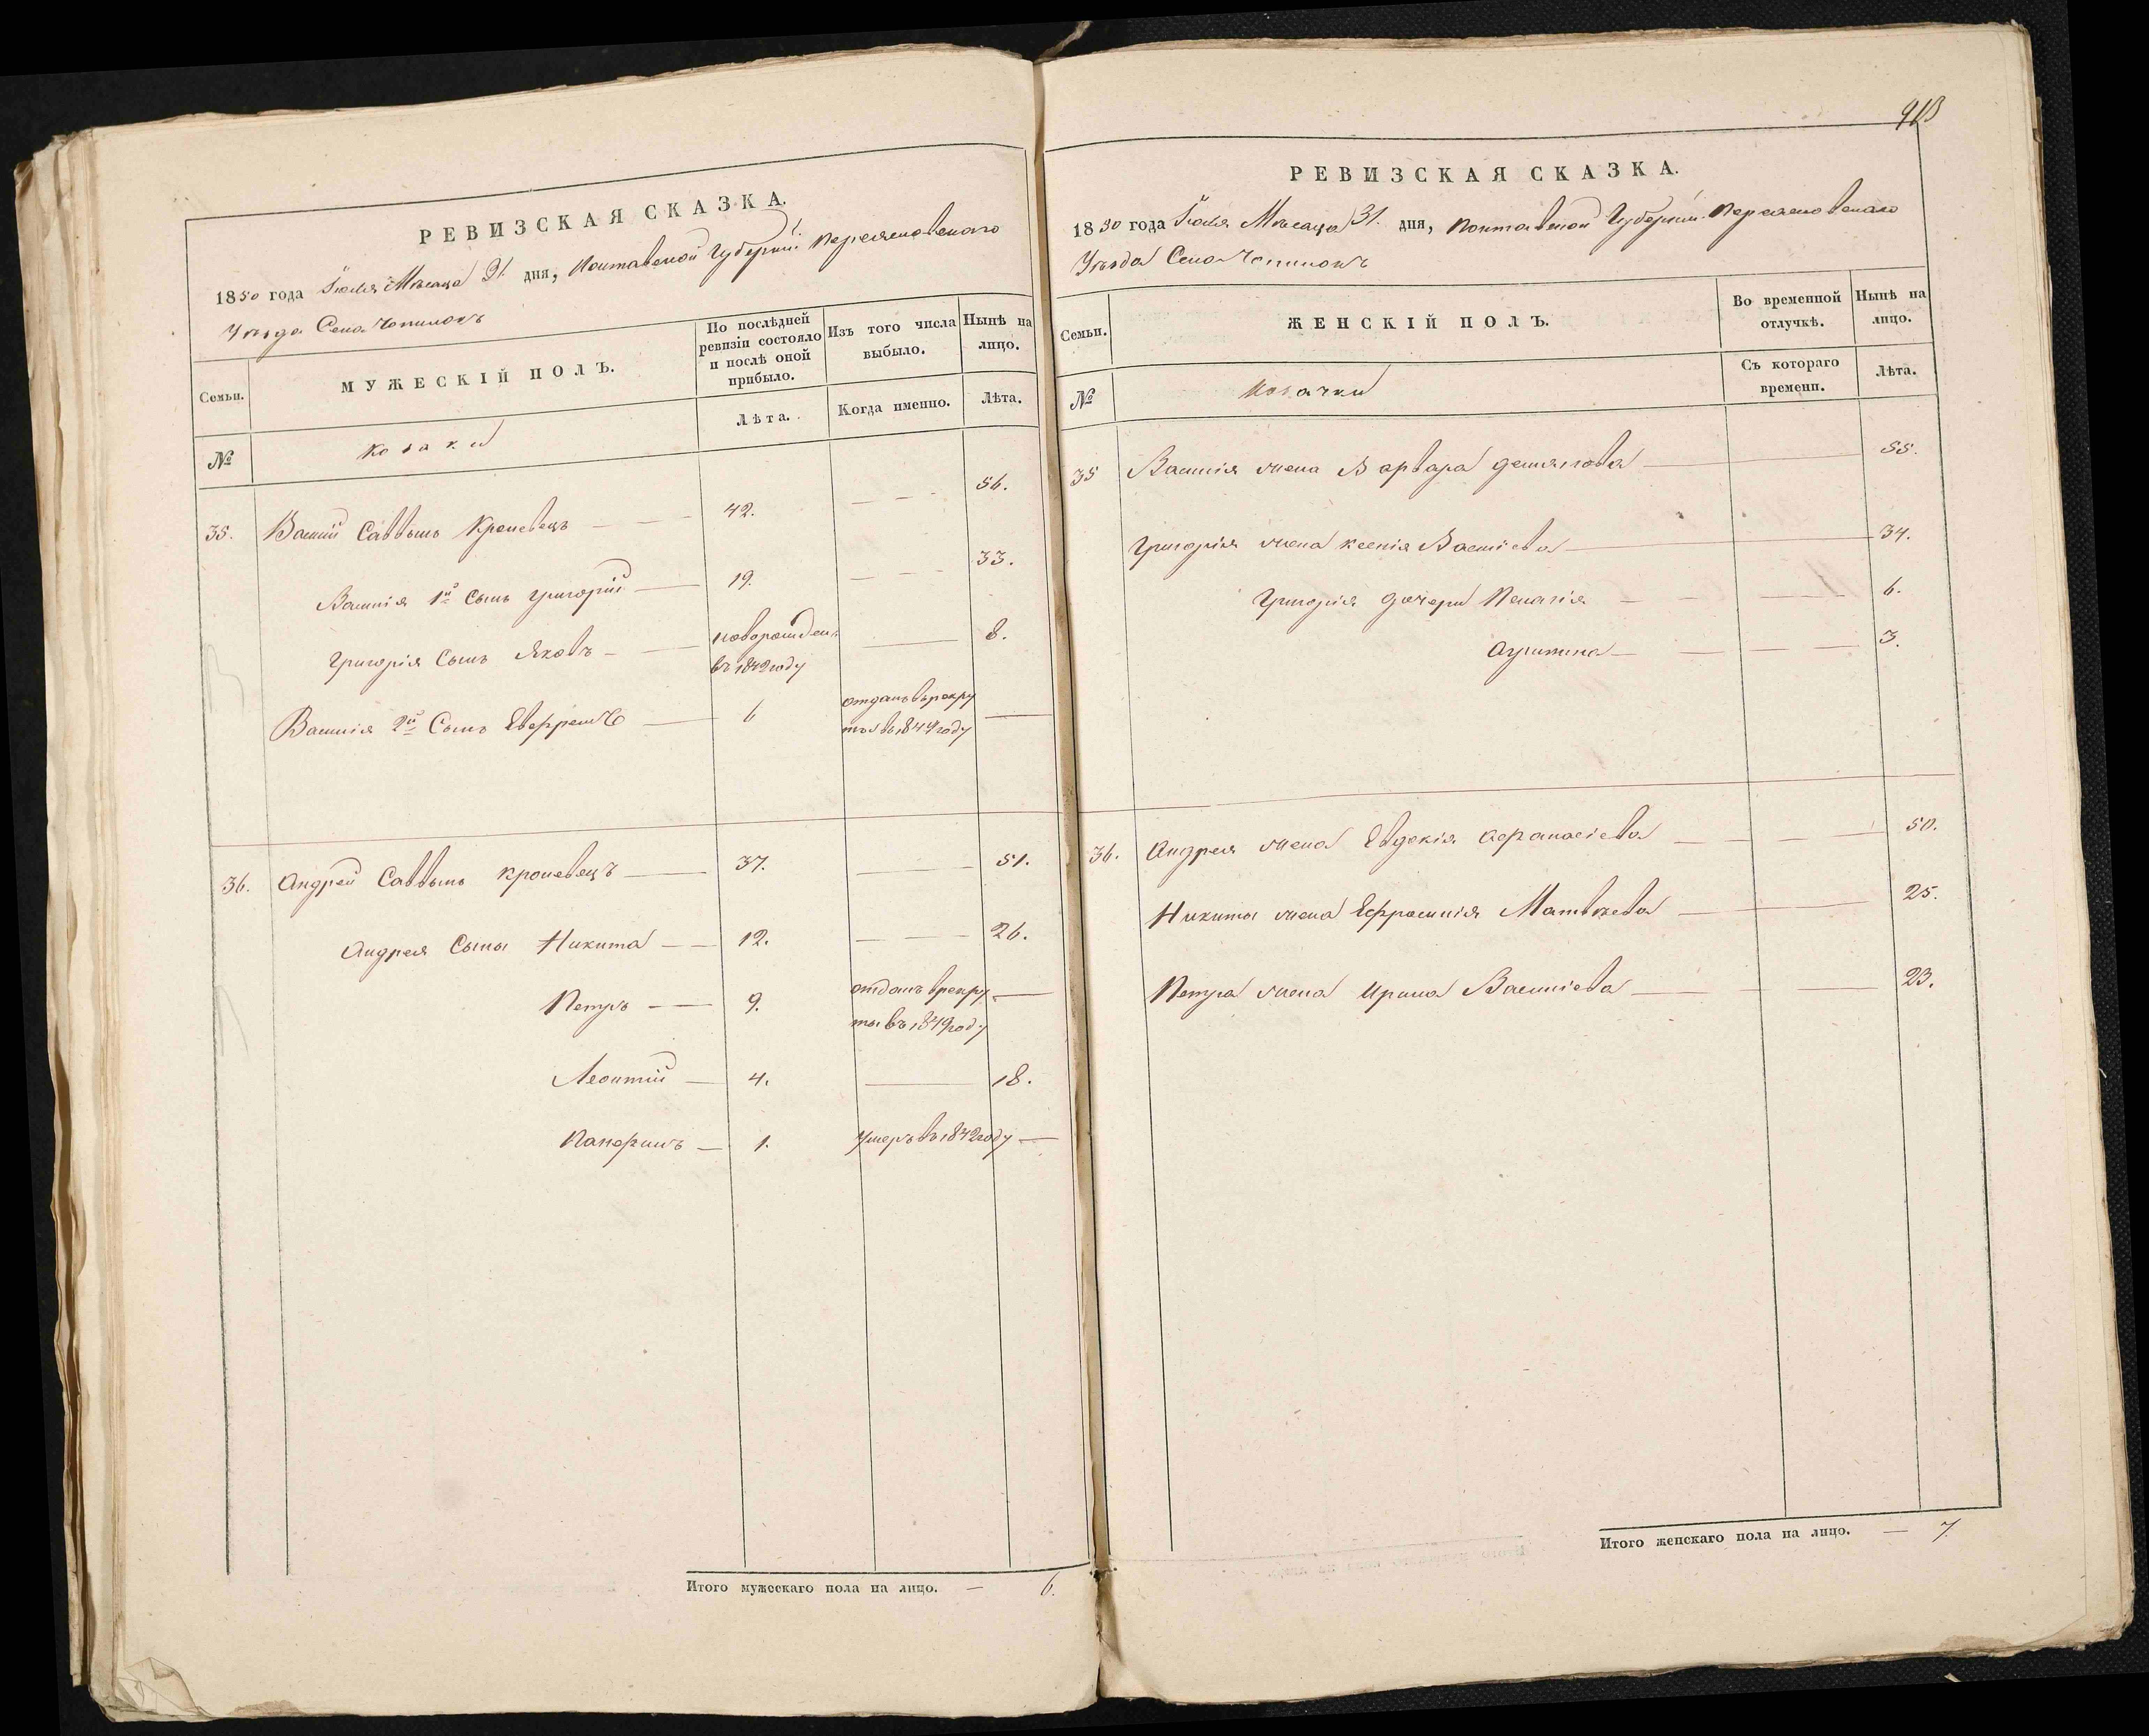 РЕВИЗСКАЯ СКАЗКА.
1850 года Іюля Мѣсяца 31. дня, Полтавской Губерніи Переяславскаго
Уѣзда Села Чопилокъ
Семьи.
МУЖЕСКІЙ ПОЛЪ.
По послѣдней ревизіи состояло и послѣ оной прибыло.
Изъ того числа выбыло.
Нынѣ на лицо.
№
козаки
Лѣта.
Когда именно.
Лѣта.
35. Василій Саввинъ Кролевецъ 42. 56.
Василія 1й Сынъ Григорій 19. 33.
Григорія Сынъ Яковъ новорожден. въ 1842 году 8.
Василія 2й Сынъ 6 отданъ въ рекру
ты въ 1844 году
36. Андрей Саввинъ кролевецъ 37. 51.
Андрея Сыны Никита 12. 26.
Петръ 9. отданъ в рекру
ты въ 1849 году
Леонтій 4. 18.
1. умеръ въ 1842 году
Итого мужескаго пола на лицо. — 6.
918
РЕВИЗСКАЯ СКАЗКА.
1850 года Іюля Мѣсяца 31. дня, Полтавской Губерніи Переяславскаго
Уѣзда Села Чопилокъ
Семьи.
ЖЕНСКІЙ ПОЛЪ.
Во временной отлучкѣ.
Нынѣ на лицо.
№
козачки
Съ котораго времени.
Лѣта.
35 Василія жена Варвара 55.
Григорія жена ксенія Василіева 34.
Григорія дочери Пелагія 6.
3.
36. Андрея жена Евдокія Афанасіева 50.
Никиты жена Ефросинія Матвѣева 25.
Петра жена Ирина Василіева 23.
Итого женскаго пола на лицо. — 7